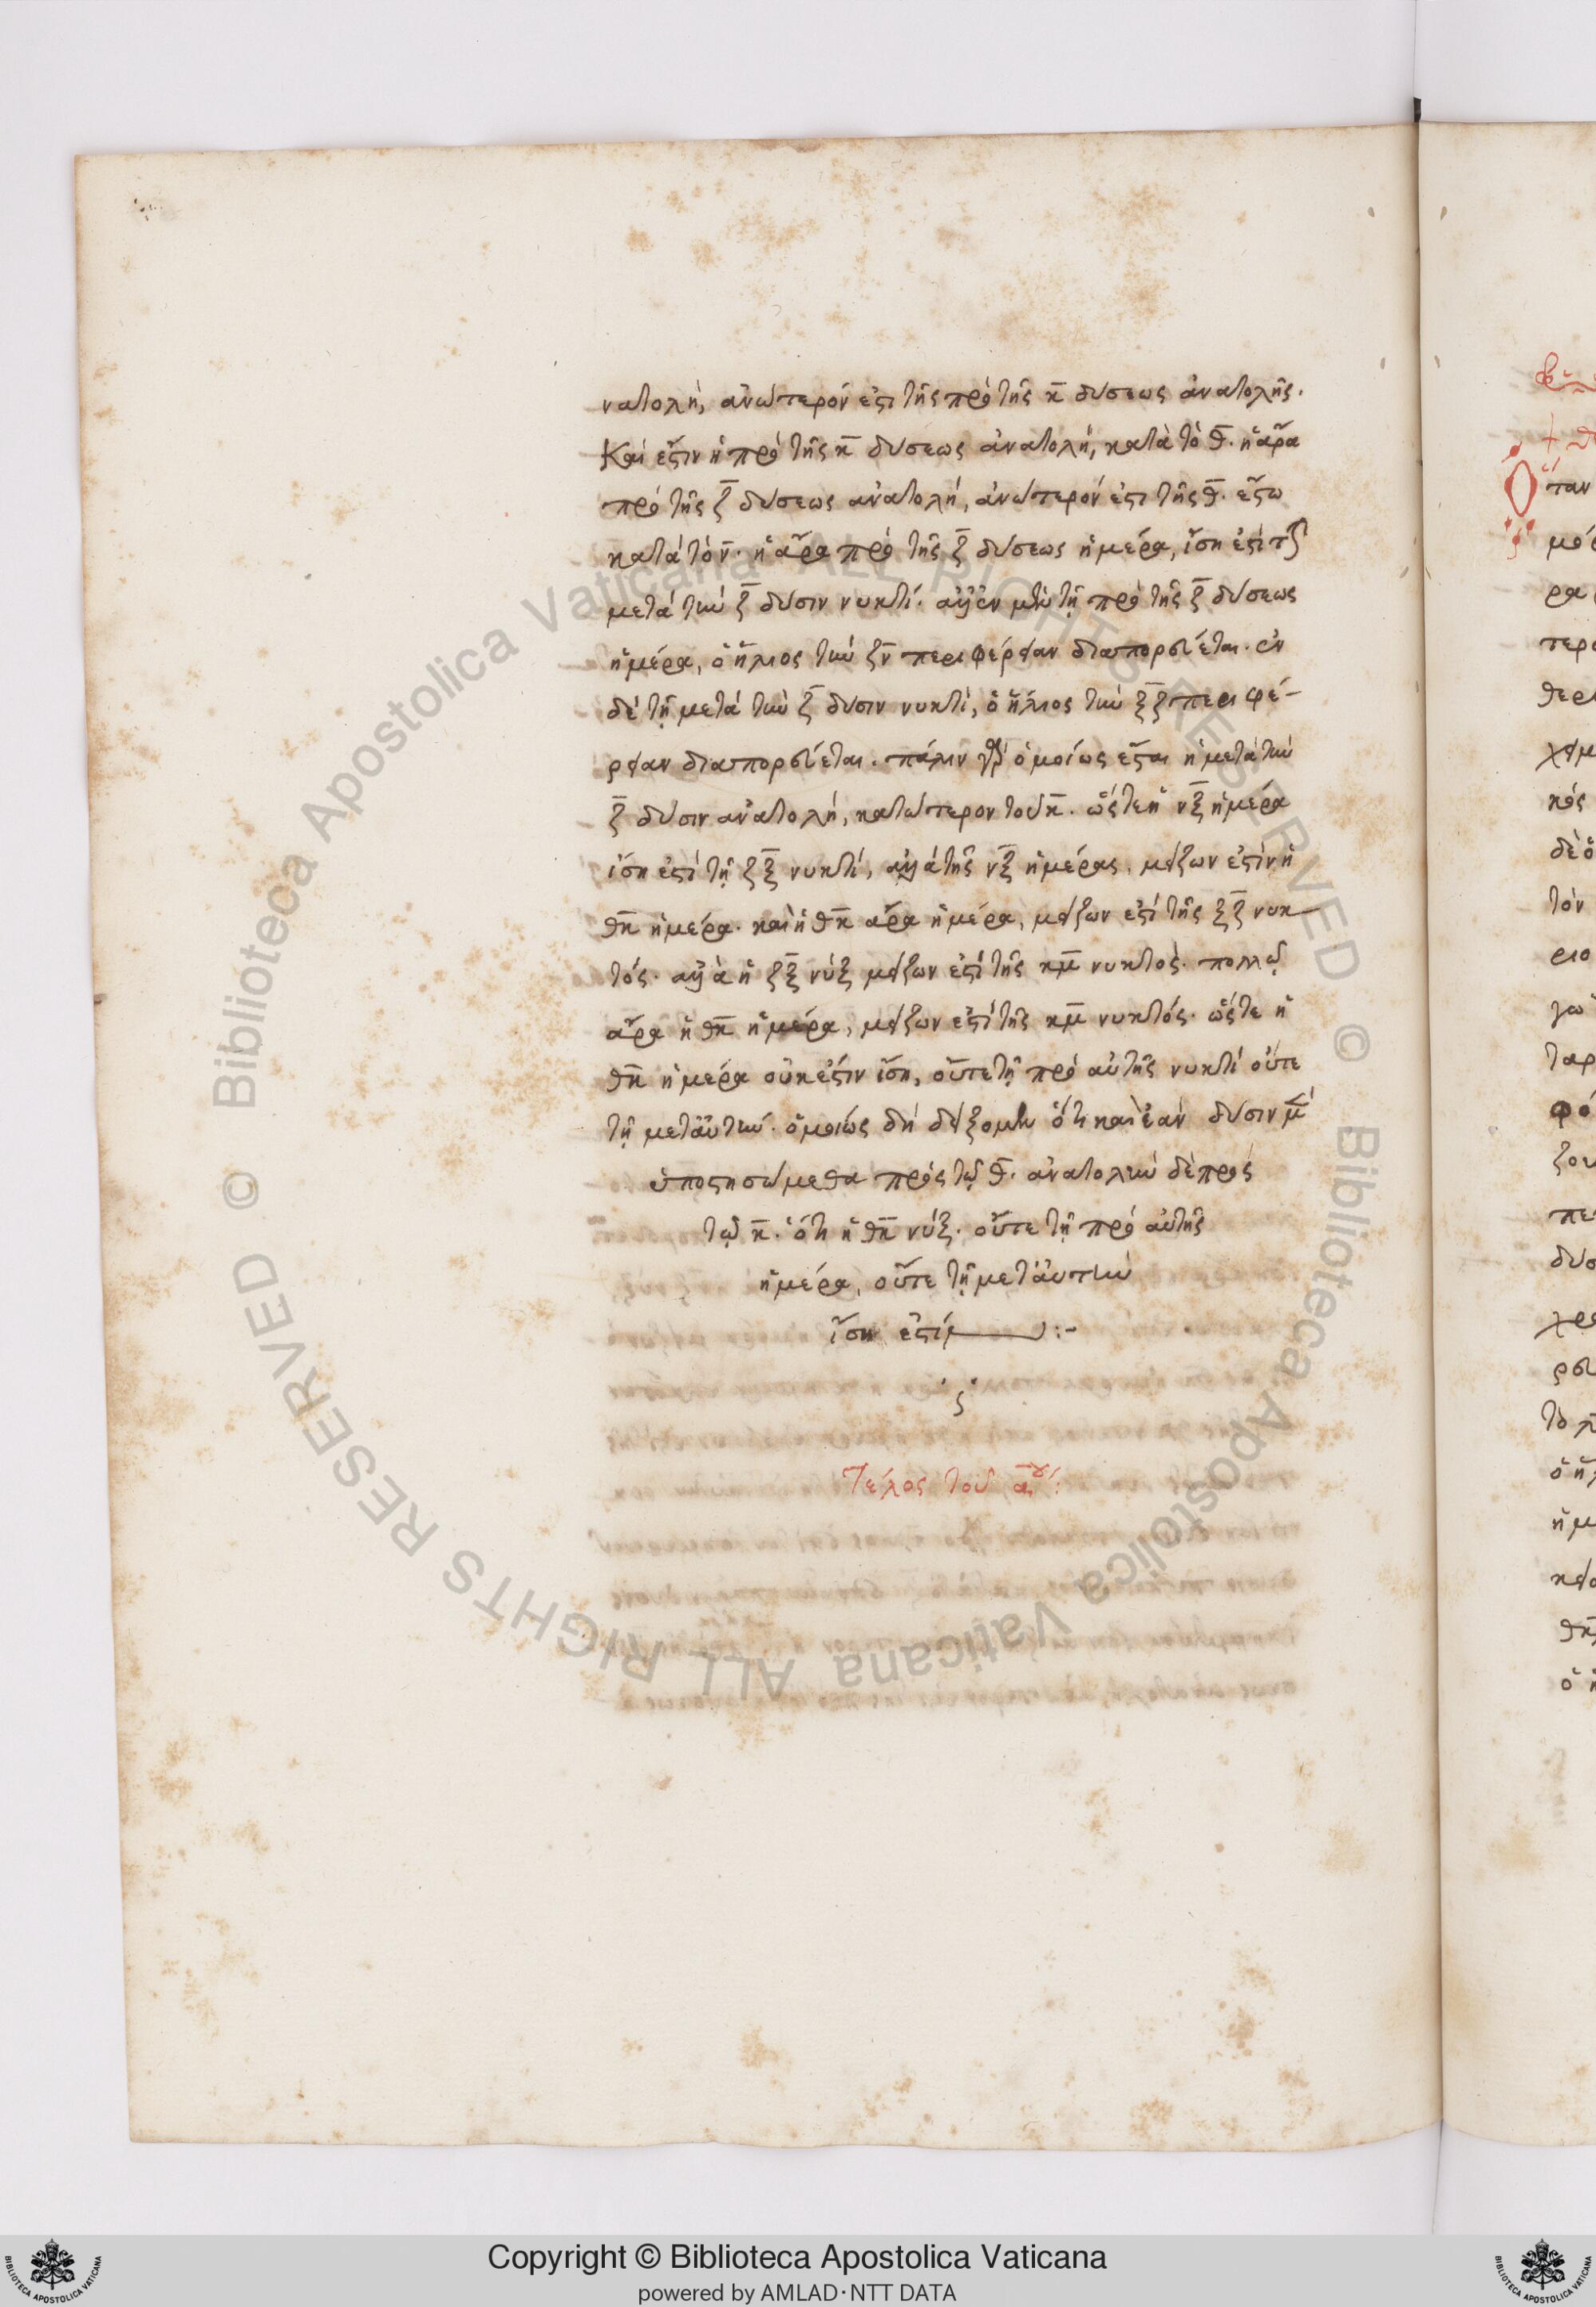 νατολὴ, ἀνώτερόν ἐστι τῆς πρὸ τῆς κ̄ δύσεως ἀνατολῆς.
Καὶ ἔστιν ἡ πρὸ τῆς κ̄ δύσεως ἀνατολὴ, κατὰ τὸ θ̄. ἡ ἄρα
πρὸ τῆς ζ̄ δύσεως ἀνατολή, ἀνώτερόν ἐστι τῆς θ̄. ἔστω
κατὰ τὸ ν̄. ἡ ἄρα πρὸ τῆς ζ̄ δύσεως ἡμέρα, ἴση ἐστὶ τῇ
μετὰ τὴν ζ̄ δύσιν νυκτί. ἀλλ' ἐν μὲν τῇ πρὸ τῆς ζ̄ δύσεως
ἡμέρα, ὁ ἥλιος τὴν ζν̄ περιφέρειαν διαπορεύεται. ἐν
δὲ τῇ μετὰ τὴν ζ̄ δύσιν νυκτὶ, ὁ ἥλιος τὴν ζ̄ξ̄ περιφέ-
ρειαν διαπορεύεται. πάλιν δὴ ὁμοίως ἔσται ἡ μετὰ τὴν
ζ̄ δύσιν ἀνατολή, κατώτερον τοῦ κ̄. ὥστε ἡ νξ̄ ἡμέρα
ἴση ἐστὶ τῇ ζξ̄ νυκτί, ἀλλὰ τῆς νξ̄ ἡμέρας, μείζων ἐστὶν ἡ
θκ̄ ἡμέρα. καὶ ἡ θκ̄ ἄρα ἡμέρα, μείζων ἐστὶ τῆς ζξ̄ νυκ
τός. ἀλλὰ ἡ ζξ̄ νύξ μείζων ἐστὶ τῆς κμ̄ νυκτὸς. πολλῷ
ἄρα ἡ θκ̄ ἡμέρα, μείζων ἐστὶ τῆς κμ̄ νυκτός. ὥστε ἡ
θκ̄ ἡμέρα οὐκ ἔστιν ἴση, οὔτε τῇ πρὸ αὐτῆς νυκτὶ οὔτε
τῇ μετ' αὐτήν. ὁμοίως δὴ δείξομεν ὅτι καὶ ἐὰν δύσιν μὲν
ὑποστησώμεθα πρὸς τῷ θ̄. ἀνατολὴν δὲ πρὸς
τῷ κ̄. ὅτι ἡ θκ̄ νύξ. οὔτε τῇ πρὸ αὐτῆς
ἡμέρα, οὔτε τῇ μετ' αὐτὴν
ἴση ἐστί :-
Τέλος τοῦ α̅ου:
Copyright © Biblioteca Apostolica Vaticana
powered by AMLAD·NTT DATA
© Biblioteca Apostolica Vaticana ALL RIGHTS RESERVED © Biblioteca Apostolica Vaticana ALL RIGHTS RESERVED